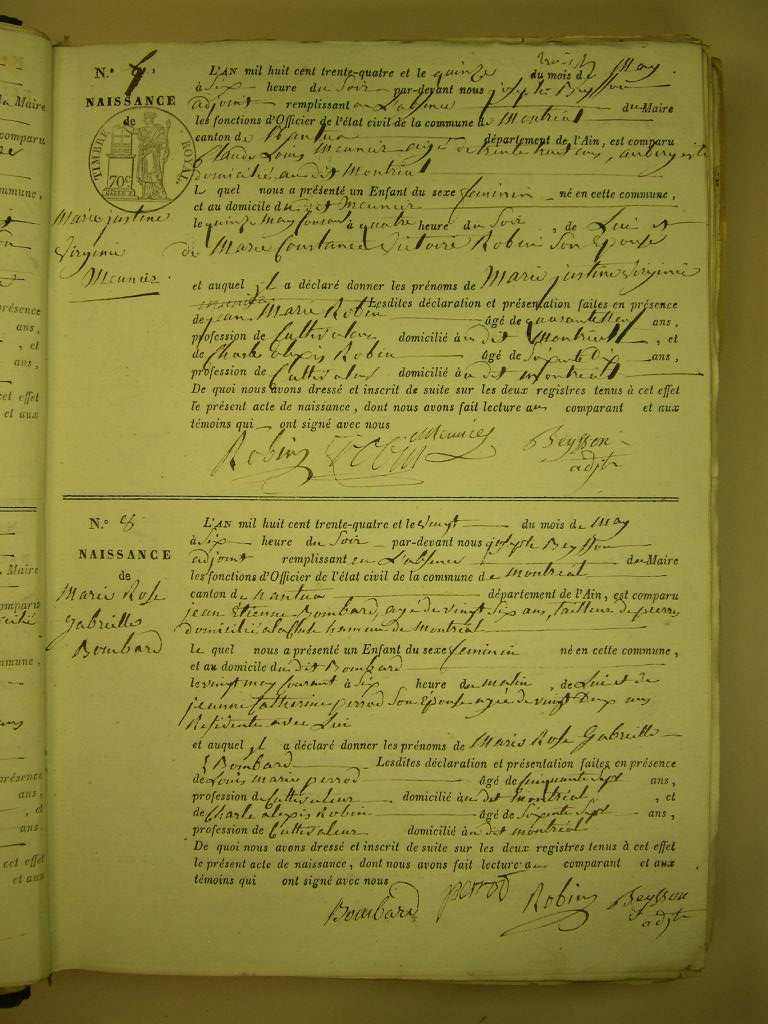 N.º
L'AN mil huit cent trente-quatre et le quinze du mois de May
à six heure du soir par-devant nous joseph Beysson
adjoint remplissant en L'absence du Maire
les fonctions d'Officier de l'état civil de la commune de Montréal
canton de Nantua département de l'Ain, est comparu
Claude Louis Meunier agé de trente huit ans, aubergiste
domicilié au dit Montréal
NAISSANCE
de
TIMBRE ROYAL
70c
Marie justine
Virginie
Meunier
Le quel nous a présenté un Enfant du sexe feminin né en cette commune,
et au domicile du dit Meunier
le quinze may courant à quatre heure du soir, de Lui et
de Marie Constance Victoire Robin son Epouse
et auquel il a déclaré donner les prénoms de Marie justine Virginie
Meunier Lesdites déclaration et présentation faites en présence
de jean Marie Robin âgé de quarante neuf ans,
profession de Cultivateur domicilié au dit Montréal, et
de Charle alexis Robin âgé de soixante Dix ans,
profession de Cultivateur domicilié au dit montréal
De quoi nous avons dressé et inscrit de suite sur les deux registres tenus à cet effet
le présent acte de naissance, dont nous avons fait lecture au comparant et aux
témoins qui ont signé avec nous
Robin Meunier Beysson
adjt
N.º 8
NAISSANCE
de
Marie Rose
Gabrielle
Bombard
L'AN mil huit cent trente-quatre et le vingt du mois de May
à six heure du soir par-devant nous joseph Beysson
adjoint remplissant en L'absence du Maire
les fonctions d'Officier de l'état civil de la commune de montréal
canton de nantua département de l'Ain, est comparu
jean Etienne Bombard, agé de vingt six ans, tailleur de pierres
domicilié hameau de Montréal
le quel nous a présenté un Enfant du sexe feminin né en cette commune,
et au domicile du dit Bombard
le vingt may courant à six heure du matin, de Lui et de
jeanne Catherine perrod son Epouse agée de vingt Deux ans
Residente avec Lui
et auquel il a déclaré donner les prénoms de Marie Rose Gabrielle
Bombard Lesdites déclaration et présentation faites en présence
de Louis marie perrod âgé de cinquante sept ans,
profession de Cultivateur domicilié au dit Montréal, et
de Charle alexis Robin âgé de soixante sept ans,
profession de Cultivateur domicilié au dit montréal
De quoi nous avons dressé et inscrit de suite sur les deux registres tenus à cet effet
le présent acte de naissance, dont nous avons fait lecture au comparant et aux
témoins qui ont signé avec nous
Bombard perrod Robin Beysson
adjt